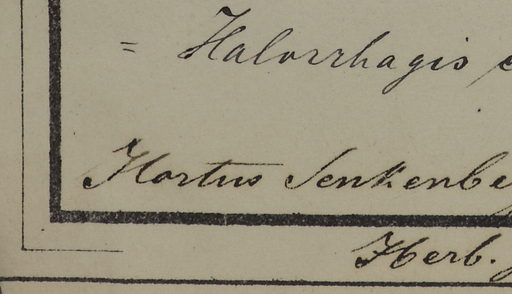 = Halorrhagis
Hortus Senkenbe
Herb.